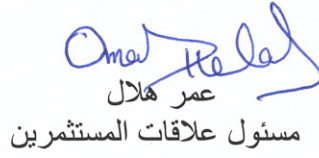 Omar Helal
عمر هلال
مسئول علاقات المستثمرين